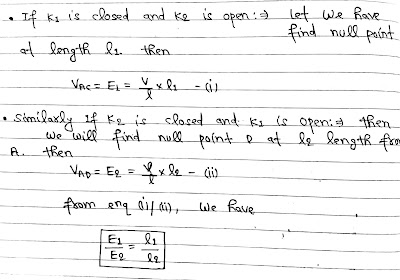 • If K₁ is closed and K₂ is open:⇒ Let we have
find null point
at length l₁. then
V_AC = E₁ = V/l × l₁ - (i)
• Similarly If K₂ is closed and K₁ is open:⇒ then
we will find null point D at l₂ length from
A. then
V_AD = E₂ = V/l × l₂ - (ii)
from enq (i)/(ii), we have
E₁/E₂ = l₁/l₂